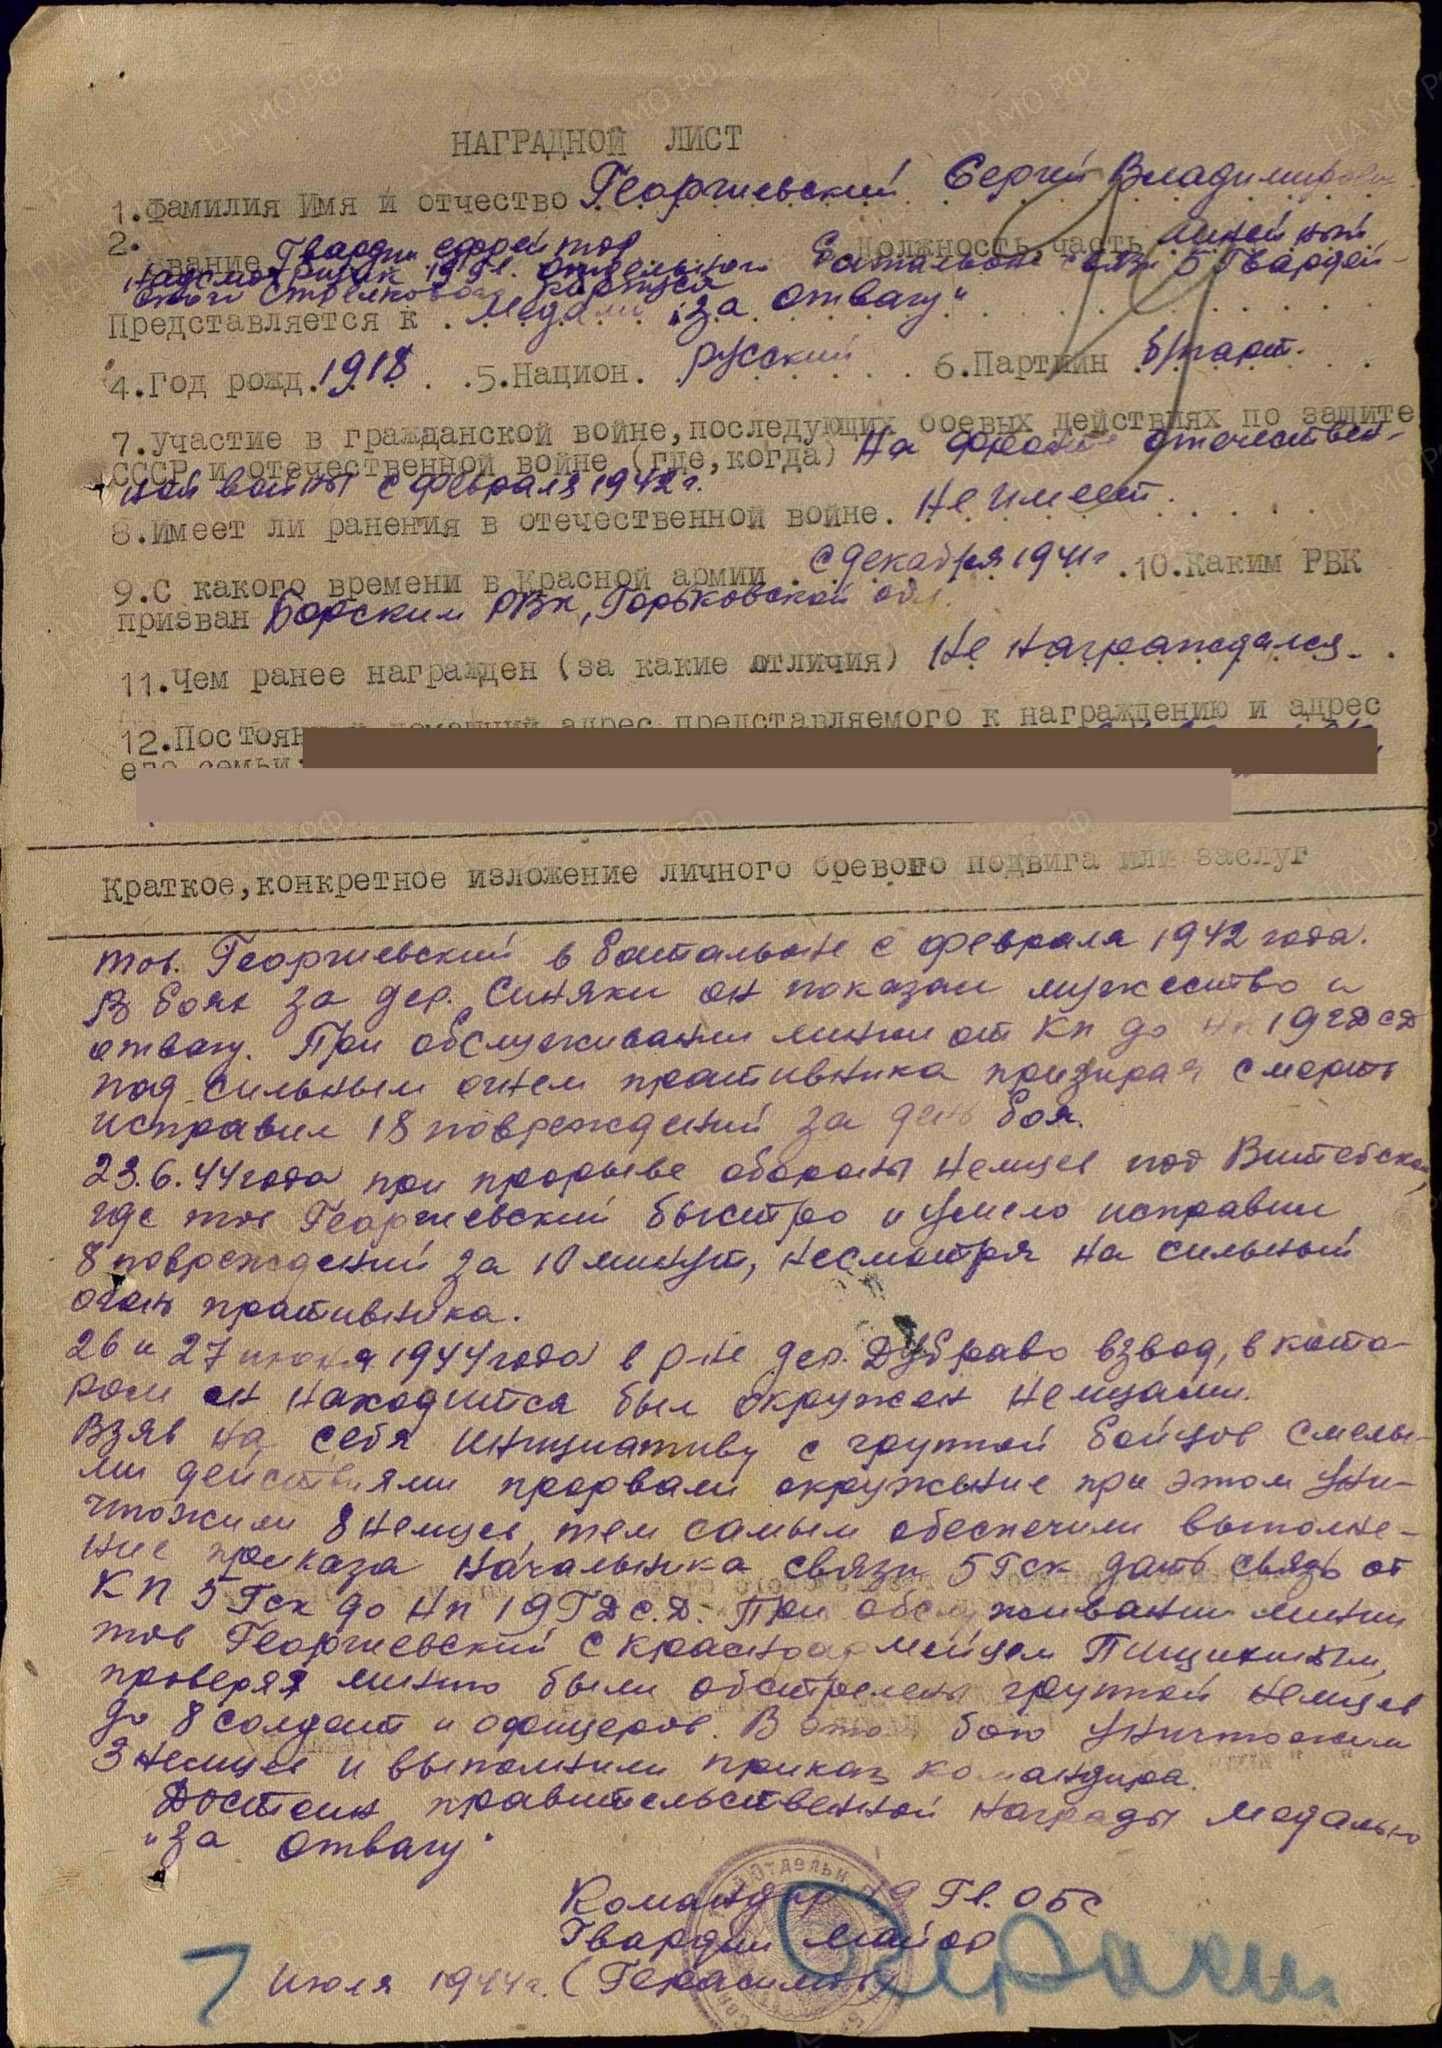 НАГРАДНОЙ ЛИСТ
1.Фамилия Имя и отчество Георгиевский Сергей Владимирович
2. Звание Гвардии ефрейтор Должность часть линейный
надсмотрщик 19 Гв. отдельного батальона связи 5 Гвардей-
ского Стрелкового корпуса
Представляется к медали „За отвагу"
4.Год рожд. 1918 5.Национ. русский 6.Партийн б/парт.
7.Участие в гражданской войне,последующих боевых действиях по защите
СССР и отечественной войне (где,когда) На фронте отечествен-
ной войны с февраля 1942г.
8.Имеет ли ранения в отечественной войне. Не имеет.
9.С какого времени в красной армии С декабря 1941г .10.Каким РВК
призван Борским РВК, Горьковской обл.
11.Чем ранее награжден (за какие отличия) Не награждался.
12.Постоян домашний адрес представляемого к награждению и адрес
его семьи:
Краткое,конкретное изложение личного боевого подвига или заслуг
тов. Георгиевский в батальоне с февраля 1942 года.
В боях за дер. Синяки он показал мужество и
отвагу. При обслуживании линии от КП до НП 19ГДСД
под сильным огнем противника призирая смерть
исправил 18 повреждений за день боя.
23.6.44 года при прорыве обороны немцев под Витебском,
где тов Георгиевский быстро и умело исправил
8 повреждений за 10 минут, несмотря на сильный
огонь противника.
26 и 27 июня 1944 года в р-не дер. Дубраво взвод, в кото-
ром он находится был окружен немцами.
Взяв на себя инициативу с группой бойцов смелы-
ми действиями прорвали окружение при этом уни-
чтожили 8 немцев, тем самым обеспечили выполне-
ние приказа начальника связи 5 Гск дать связь от
КП 5 Гск до НП 19 ГДС.Д. При обслуживании линии
тов Георгиевский с красноармейцем Пищикиным,
проверяя линию были обстрелены группой немцев
до 8 солдат и офицеров. В этом бою уничтожили
3 немцев и выполнили приказ командира.
Достоин правительственной награды медалью
„За отвагу"
Командир 19 Гв. ОБС
Гвардии майор
7 Июля 1944г. (Герасимов)